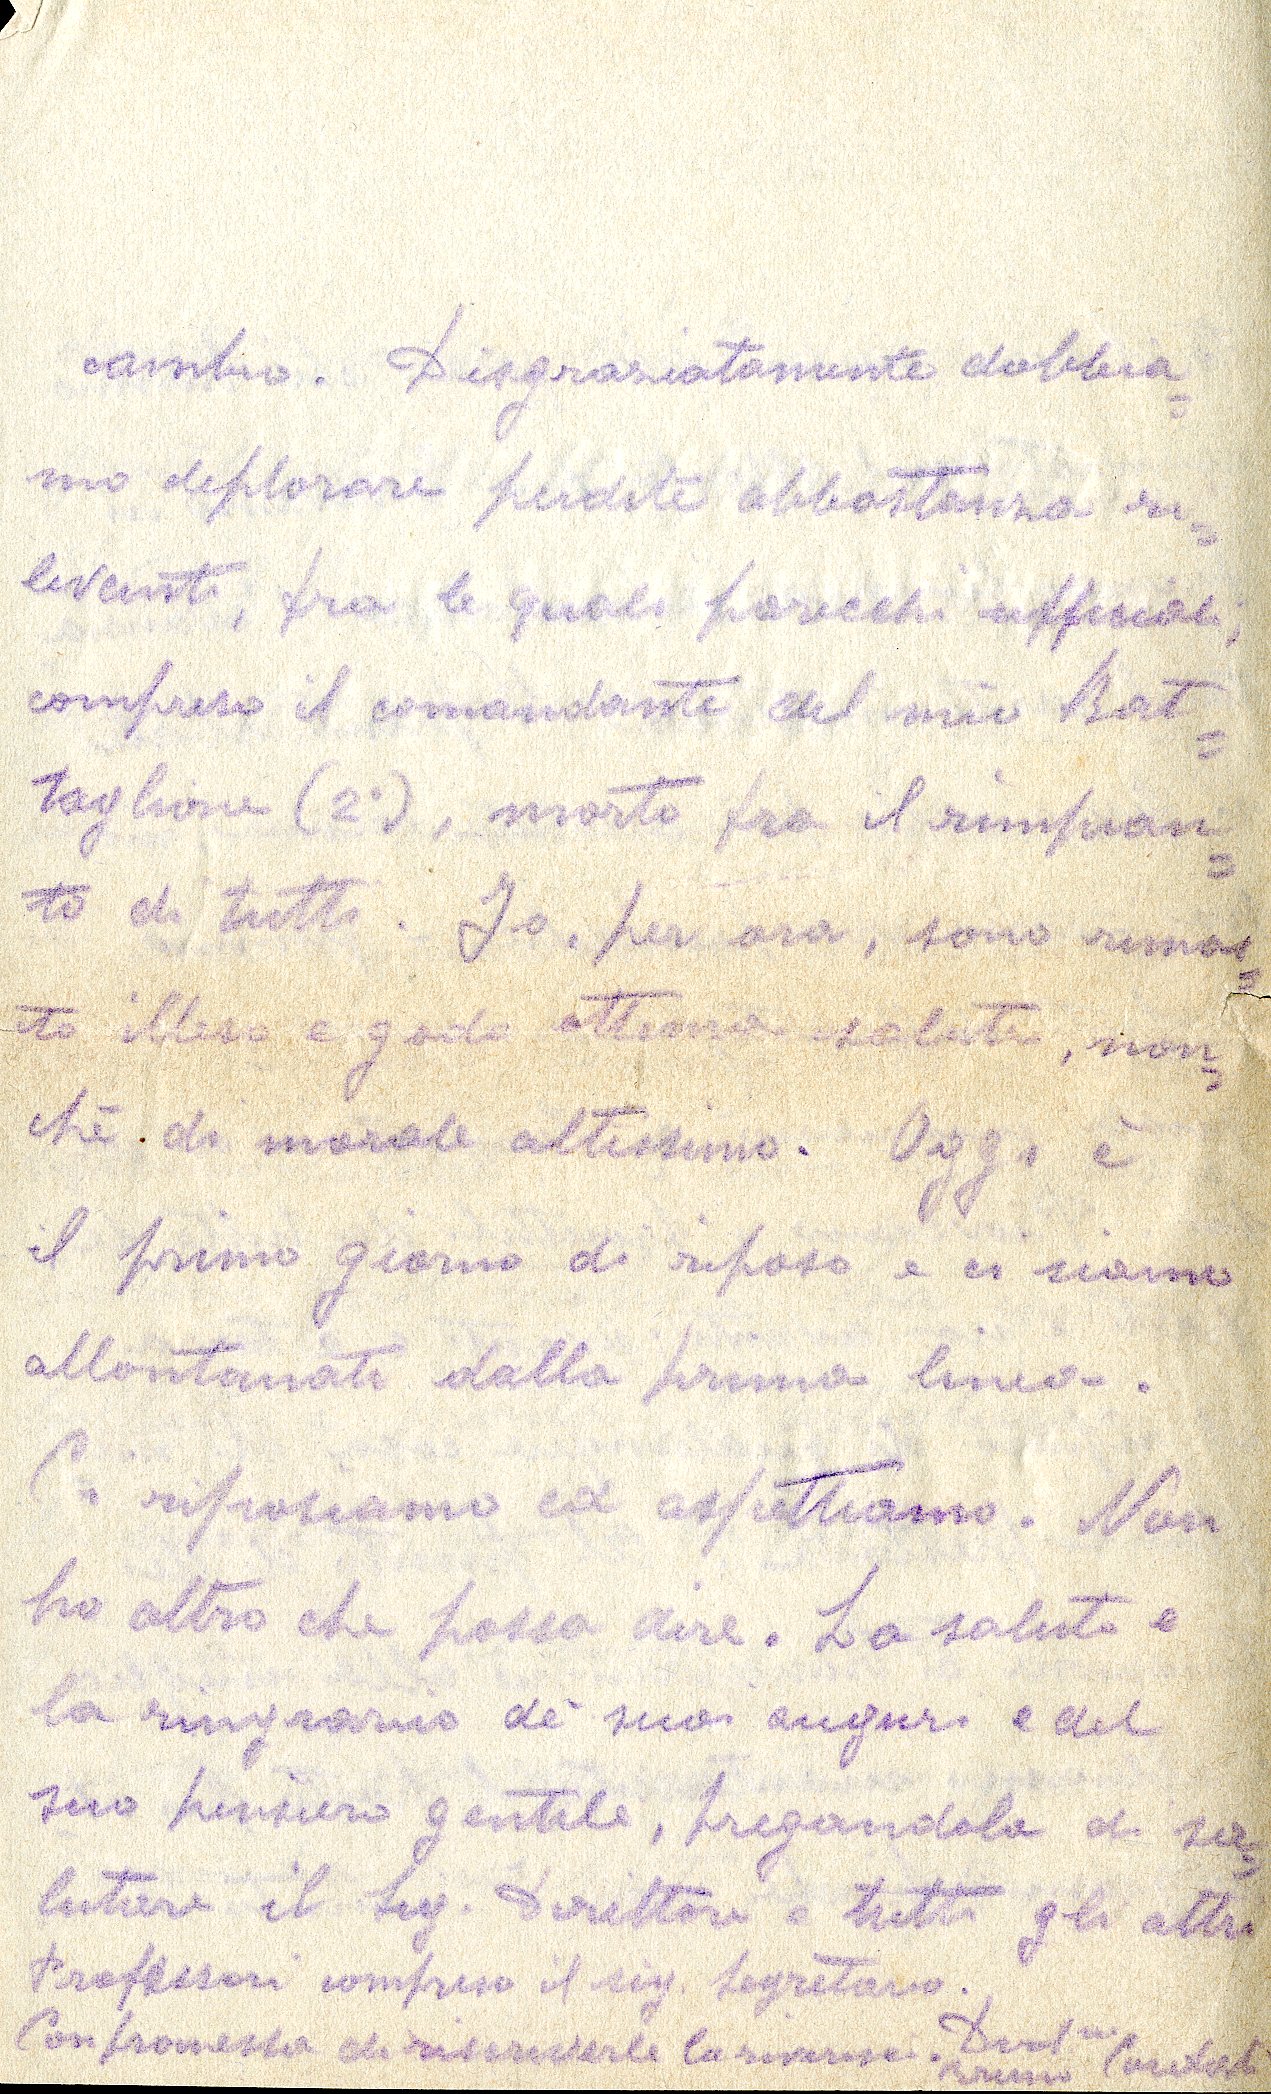 cambio. Disgraziatamente dobbia=
mo deplorare perdite abbastanza ri=
levanti, fra le quali parecchi ufficiali,
compreso il comandante del mio Bat=
taglione (2°), morto fra il rimpian=
to di tutti. Io, per ora, sono rimas=
to illeso e godo ottima salute, non=
chè di morale altissimo. Oggi è
il primo giorno di riposo e ci siamo
allontanati dalla prima linea.
Ci riposiamo ed aspettiamo. Non
ho altro che possa dire. La saluto e
la ringrazio de' suoi auguri e del
suo pensiero gentile, pregandola di sa=
lutare il Sig. Direttore e tutti gli altri
Professori compreso il sig. Segretario.
Con promessa di riscriverle la riverisco.
Bruno